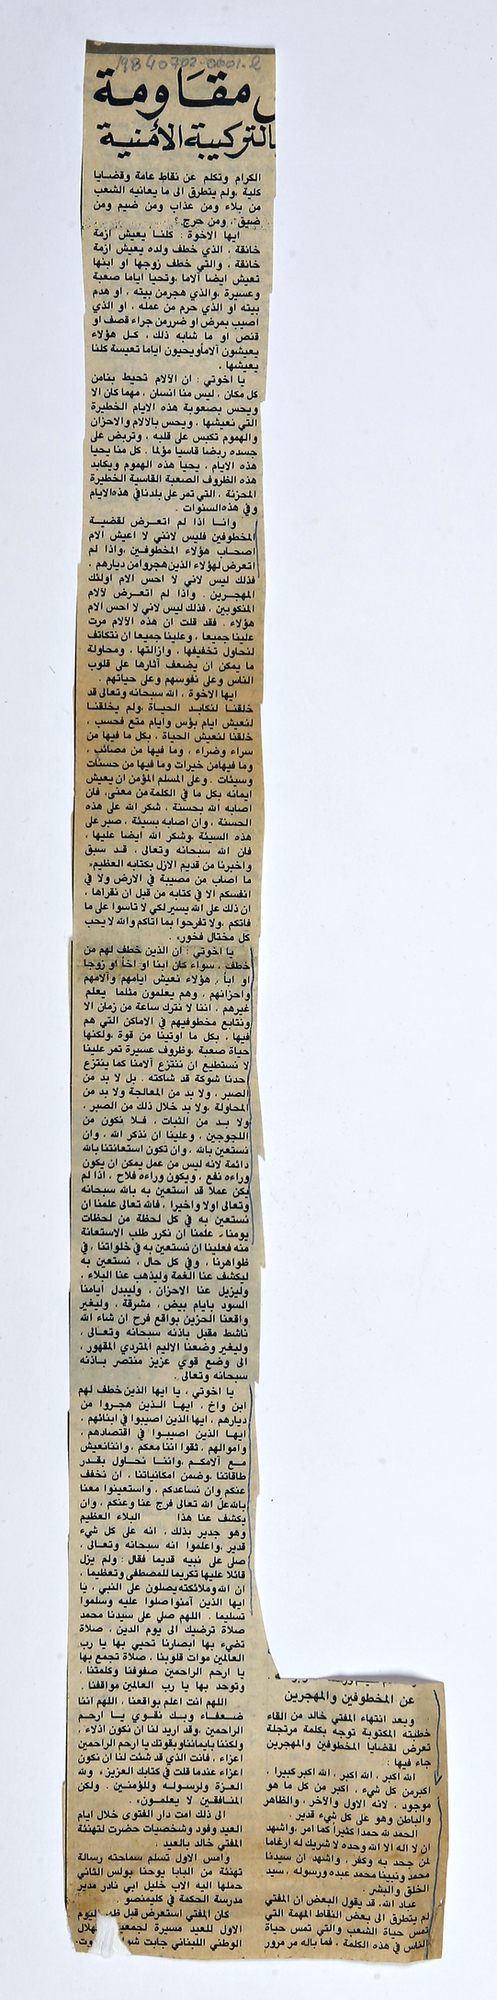 19840702-0001-2
مقاومة
بالتركيبة الأمنية
عن المخطوفين والمهجرين
وبعد انتهاء المفتي خالد من القاء
خطبته المكتوبة توجه بكلمة مرتجلة
تعرض لقضايا المخطوفين والمهجرين
جاء فيها :
الله أكبر ، الله أكبر ، الله أكبر كبيرا ،
أكبر من كل شيء ، أكبر من كل ما هو
موجود ، لانه الاول والآخر ، والظاهر
والباطن وهو على كل شيء قدير .
الحمد لله حمدا كثيرا كما أمر ،واشهد
ان لا اله الا الله وحده لا شريك له ارغاما
لمن جحد به وكفر ، واشهد ان سيدنا
محمد ونبينا محمد عبده ورسوله ، سيد
الخلق والبشر .
عباد الله، قد يقول البعض ان المفتي
لم يتطرق الى بعض النقاط المهمة التي
تمس حياة الشعب والتي تمس حياة
الناس في هذه الكلمة ، فما باله مر مرور
الكرام وتكلم عن نقاط عامة وقضايا
كلية ،ولم يتطرق الى ما يعانيه الشعب
من بلاء ومن عذاب ومن ضيم ومن
ضيق ، ومن حرج ؟
ايها الاخوة : كلنا يعيش ازمة
خانقة ، الذي خطف ولده يعيش ازمة
خانقة ، والتي خطف زوجها او ابنها
تعيش ايضا آلاما ،وتحيا اياما صعبة
وعسيرة ،والذي هجر من بيته ، او هدم
بيته او الذي حرم من عمله ، او الذي
اصيب بمرض او ضرر من جراء قصف او
قنص او ما شابه ذلك ، كل هؤلاء
يعيشون آلاما ويحيون اياما تعيسة كلنا
يعيشها .
يا اخوتي : ان الآلام تحيط بنا من
كل مكان ، ليس منا انسان ، مهما كان الا
ويحس بصعوبة هذه الايام الخطيرة
التي نعيشها ، ويحس بالآلام والاحزان
والهموم تكبس على قلبه ، وتربض على
جسده ربضا قاسيا مؤلما . كل منا يحيا
هذه الايام ، يحيا هذه الهموم ويكابد
هذه الظروف الصعبة القاسية الخطيرة
المحزنة ، التي تمر على بلدنا في هذه الايام
وفي هذه السنوات .
وانا اذا لم اتعرض لقضية
المخطوفين فليس لانني لا اعيش آلام
اصحاب هؤلاء المخطوفين ،واذا لم
اتعرض لهؤلاء الذين هجروا من ديارهم ،
فذلك ليس لاني لا احس آلام اولئك
المهجرين . واذا لم اتعرض لآلام
المنكوبين ، فذلك ليس لاني لا احس آلام
هؤلاء . فقد قلت ان هذه الآلام مرت
علينا جميعا ، وعلينا جميعا ان نتكاتف
لنحاول تخفيفها ، وازالتها ، ومحاولة
ما يمكن ان يضعف آثارها على قلوب
الناس وعلى نفوسهم وعلى حياتهم .
ايها الاخوة ، الله سبحانه وتعالى قد
خلقنا لنكابد الحياة ،ولم يخلقنا
لنعيش ايام بؤس وايام متع فحسب ،
خلقنا لنعيش الحياة ، بكل ما فيها من
سراء وضراء ، وما فيها من مصائب ،
وما فيها من خيرات وما فيها من حسنات
وسيئات . وعلى المسلم المؤمن ان يعيش
ايمانه بكل ما في الكلمة من معنى، فان
اصابه الله بحسنة ، شكر الله على هذه
الحسنة ، وان اصابه بسيئة ، صبر على
هذه السيئة ،وشكر الله ايضا عليها ،
فان الله سبحانه وتعالى ، قد سبق
واخبرنا من قديم الازل بكتابه العظيم«
ما اصاب من مصيبة في الارض ولا في
انفسكم الا في كتابه من قبل ان نقراها ،
ان ذلك على الله يسير لكي لا تاسوا على ما
فاتكم ،ولا تفرحوا بما آتاكم والله لا يحب
كل مختال فخور»
يا اخوتي : ان الذين خطف لهم من
خطف ، سواء كان ابنا او اخا او زوجا
او ابا ، هؤلاء نعيش ايامهم وآلامهم
واحزانهم ، وهم يعلمون مثلما يعلم
غيرهم ، اننا لا نترك ساعة من زمان الا
ونتابع مخطوفيهم في الاماكن التي هم
فيها ، بكل ما اوتينا من قوة ،ولكنها
حياة صعبة ،وظروف عسيرة تمر علينا
لا نستطيع ان ننتزع آلامنا كما ينتزع
احدنا شوكة قد شاكته . بل لا بد من
الصبر ، ولا بد من المعالجة ولا بد من
المحاولة ،ولا بد خلال ذلك من الصبر ،
ولا بد من الثبات ، فلا نكون من
اللجوجين ، وعلينا ان نذكر الله ، وان
نستعين بالله ، وان تكون استعانتنا بالله
دائمة لانه ليس من عمل يمكن ان يكون
وراءه نفع ، ويكون وراءه فلاح ، اذا لم
يكن عملا قد استعين به بالله سبحانه
وتعالى اولا واخيرا ، فالله تعالى علمنا ان
نستعين به في كل لحظة من لحظات
يومنا ، علمنا ان نكرر طلب الاستعانة
منه فعلينا ان نستعين به في خلواتنا ، في
ظواهرنا ، وفي كل حال، نستعين به
ليكشف عنا الغمة وليذهب عنا البلاء ،
وليزيل عنا الاحزان ، وليبدل أيامنا
السود بايام بيض ، مشرقة ، وليغير
واقعنا الحزين بواقع فرح ان شاء الله
ناشط مقبل باذنه سبحانه وتعالى ،
وليغير وضعنا الاليم المتردي المقهور ،
الى وضع قوي عزيز منتصر باذنه
سبحانه وتعالى .
يا اخوتي ، يا ايها الذين خطف لهم
ابن واخ ، ايها الذين هجروا من
ديارهم ، ايها الذين اصيبوا في ابنائهم ،
ايها الذين اصيبوا في اقتصادهم
واموالهم ، ثقوا اننا معكم ، واننا نعيش
مع آلامكم ،واننا نحاول بقدر
طاقاتنا ،وضمن امكانياتنا ، ان نخفف
عنكم وان نساعدكم ، واستعينوا معنا
بالله عل الله تعالى فرج عنا وعنكم ، وان
يكشف عنا هذا البلاء العظيم
وهو جدير بذلك ، انه على كل شيء
قدير ،واعلموا انه سبحانه وتعالى ،
صلى على نبيه قديما فقال : ولم يزل
قائلا عليها تكريما للمصطفى وتعظيما ،
ان الله وملائكته يصلون على النبي ، يا
ايها الذين آمنوا صلوا عليه وسلموا
تسليما . اللهم صلي على سيدنا محمد
صلاة ترضيك الى يوم الدين ، صلاة
تضيء بها ابصارنا تحيي بها يا رب
العالمين موات قلوبنا ، صلاة تجمع بها
يا ارحم الراحمين صفوفنا وكلمتنا ،
وتوحد بها يا رب العالمين مواقفنا .
اللهم انت اعلم بواقعنا ، اللهم اننا
ضعفاء وبك نقوي يا ارحم
الراحمين ،وقد اريد لنا ان نكون اذلاء ،
ولكننا بايماننا وبقوتك يا ارحم الراحمين
اعزاء ، فانت الذي قد شئت لنا ان نكون
اعزاء عندما قلت في كتابك العزيز، « ولله
العزة ولرسوله وللمؤمنين . ولكن
المنافقين لا يعلمون».
الى ذلك امت دار الفتوى خلال ايام
العيد وفود وشخصيات حضرت لتهنئة
المفتي خالد بالعيد .
وامس الاول تسلم سماحته رسالة
تهنئة من البابا يوحنا بولس الثاني
حملها اليه الاب خليل ابي نادر مدير
مدرسة الحكمة في كليمنصو .
كان المفتي استعرض قبل ظهر اليوم
الاول للعيد مسيرة لجمعية
الوطني اللبناني جابت